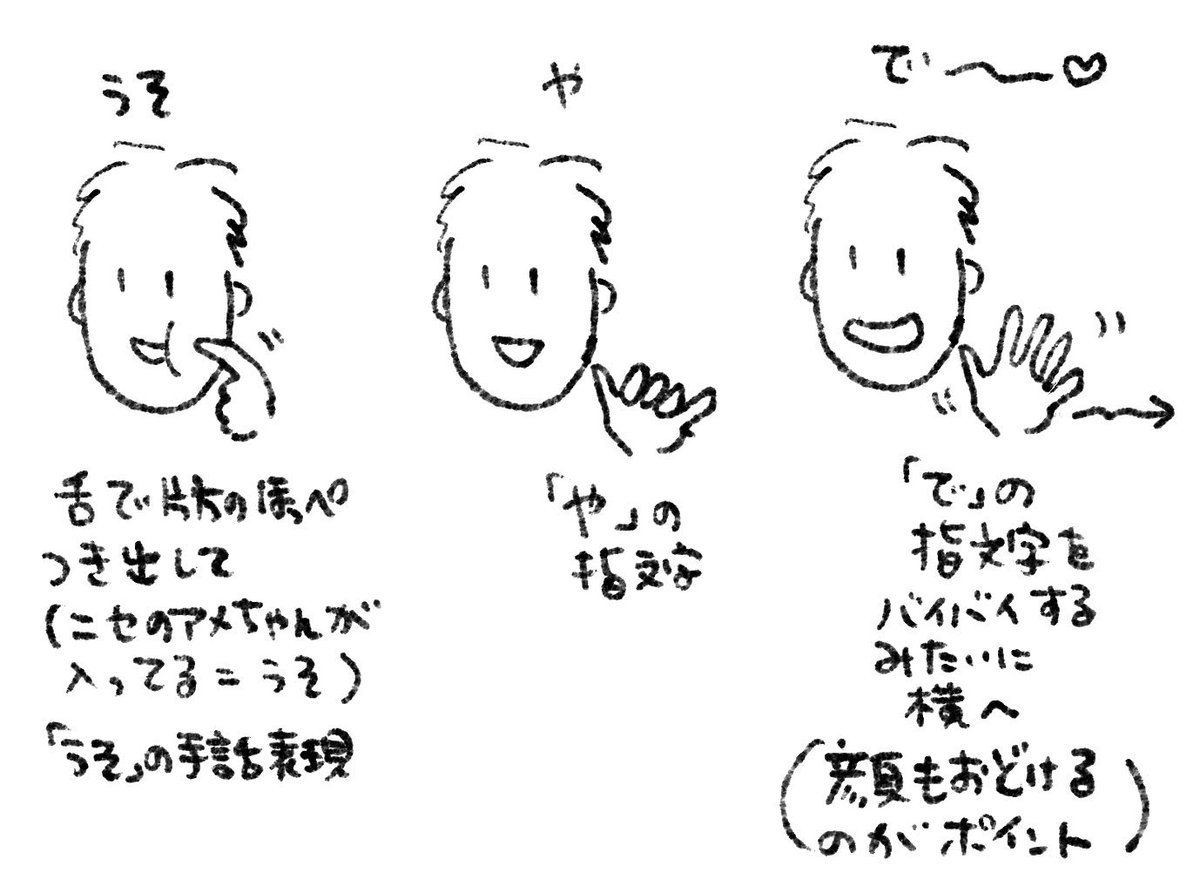 うそ
舌で片方のほっぺ
つき出して
(ニセのアメちゃんが
入ってる=うそ)
「うそ」の手話表現
や
「や」の
指文字
でぃ〜〜♡
「で」の
指文字を
バイバイする
みたいに
横へ
(顔もおどける
のがポイント)